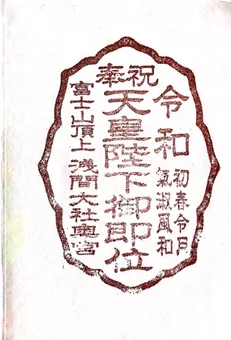 奉祝
令和
初春令月
氣淑風和
天皇陛下御即位
富士山頂上 浅間大社奥宮